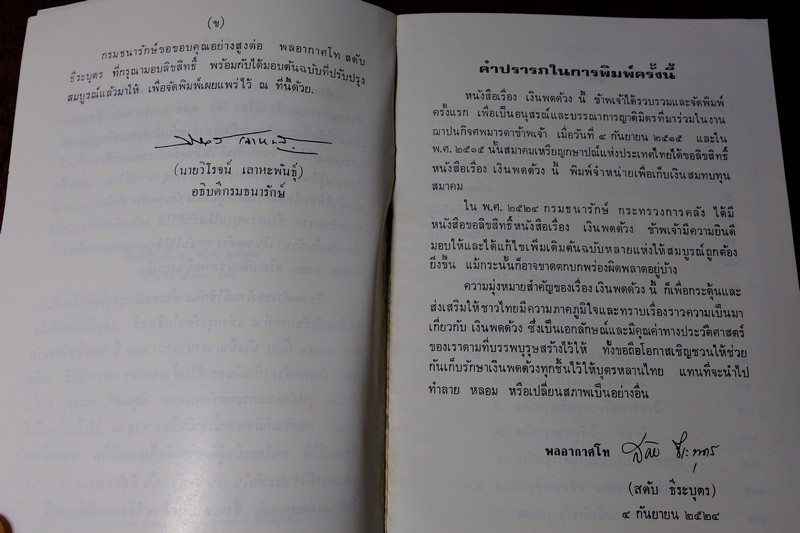 (ข)
กรมธนารักษ์ขอขอบคุณอย่างสูงต่อ พลอากาศโท สดับ
ธีระบุตร ที่กรุณามอบลิขสิทธิ์ พร้อมกับได้มอบต้นฉบับที่ปรับปรุง
สมบูรณ์แล้วมาให้ เพื่อจัดพิมพ์เผยแพร่ไว้ ณ ที่นี้ด้วย.
(นายวิโรจน์ เลาหะพันธุ์)
อธิบดีกรมธนารักษ์
คำปรารภในการพิมพ์ครั้งนี้
หนังสือเรื่อง เงินพดด้วง นี้ ข้าพเจ้าได้รวบรวมและจัดพิมพ์
ครั้งแรก เพื่อเป็นอนุสรณ์และบรรณาการญาติมิตรที่มาร่วมในงาน
ฌาปนกิจศพมารดาข้าพเจ้า เมื่อวันที่ ๔ กันยายน ๒๕๑๕ และใน
พ.ศ. ๒๕๑๕ นั้นสมาคมเหรียญกษาปณ์แห่งประเทศไทยได้ขอลิขสิทธิ์
หนังสือเรื่อง เงินพดด้วง นี้ พิมพ์จำหน่ายเพื่อเก็บเงินสมทบทุน
สมาคม
ใน พ.ศ. ๒๕๒๔ กรมธนารักษ์ กระทรวงการคลัง ได้มี
หนังสือขอลิขสิทธิ์หนังสือเรื่อง เงินพดด้วง ข้าพเจ้ามีความยินดี
มอบให้และได้แก้ไขเพิ่มเติมต้นฉบับหลายแห่งให้สมบูรณ์ถูกต้อง
ยิ่งขึ้น แม้กระนั้นก็อาจขาดตกบกพร่องผิดพลาดอยู่บ้าง
ความมุ่งหมายสำคัญของเรื่องเงินพดด้วง นี้ ก็เพื่อกระตุ้นและ
ส่งเสริมให้ชาวไทยมีความภาคภูมิใจและทราบเรื่องราวความเป็นมา
เกี่ยวกับ เงินพดด้วง ซึ่งเป็นเอกลักษณ์และมีคุณค่าทางประวัติศาสตร์
ของเราตามที่บรรพบุรุษสร้างไว้ให้ ทั้งขอถือโอกาสเชิญชวนให้ช่วย
กันเก็บรักษาเงินพดด้วงทุกชิ้นไว้ให้บุตรหลานไทย แทนที่จะนำไป
ทำลาย หลอม หรือเปลี่ยนสภาพเป็นอย่างอื่น
พลอากาศโท สดับ ธีระบุตร
(สดับ ธีระบุตร)
๔ กันยายน ๒๕๒๔